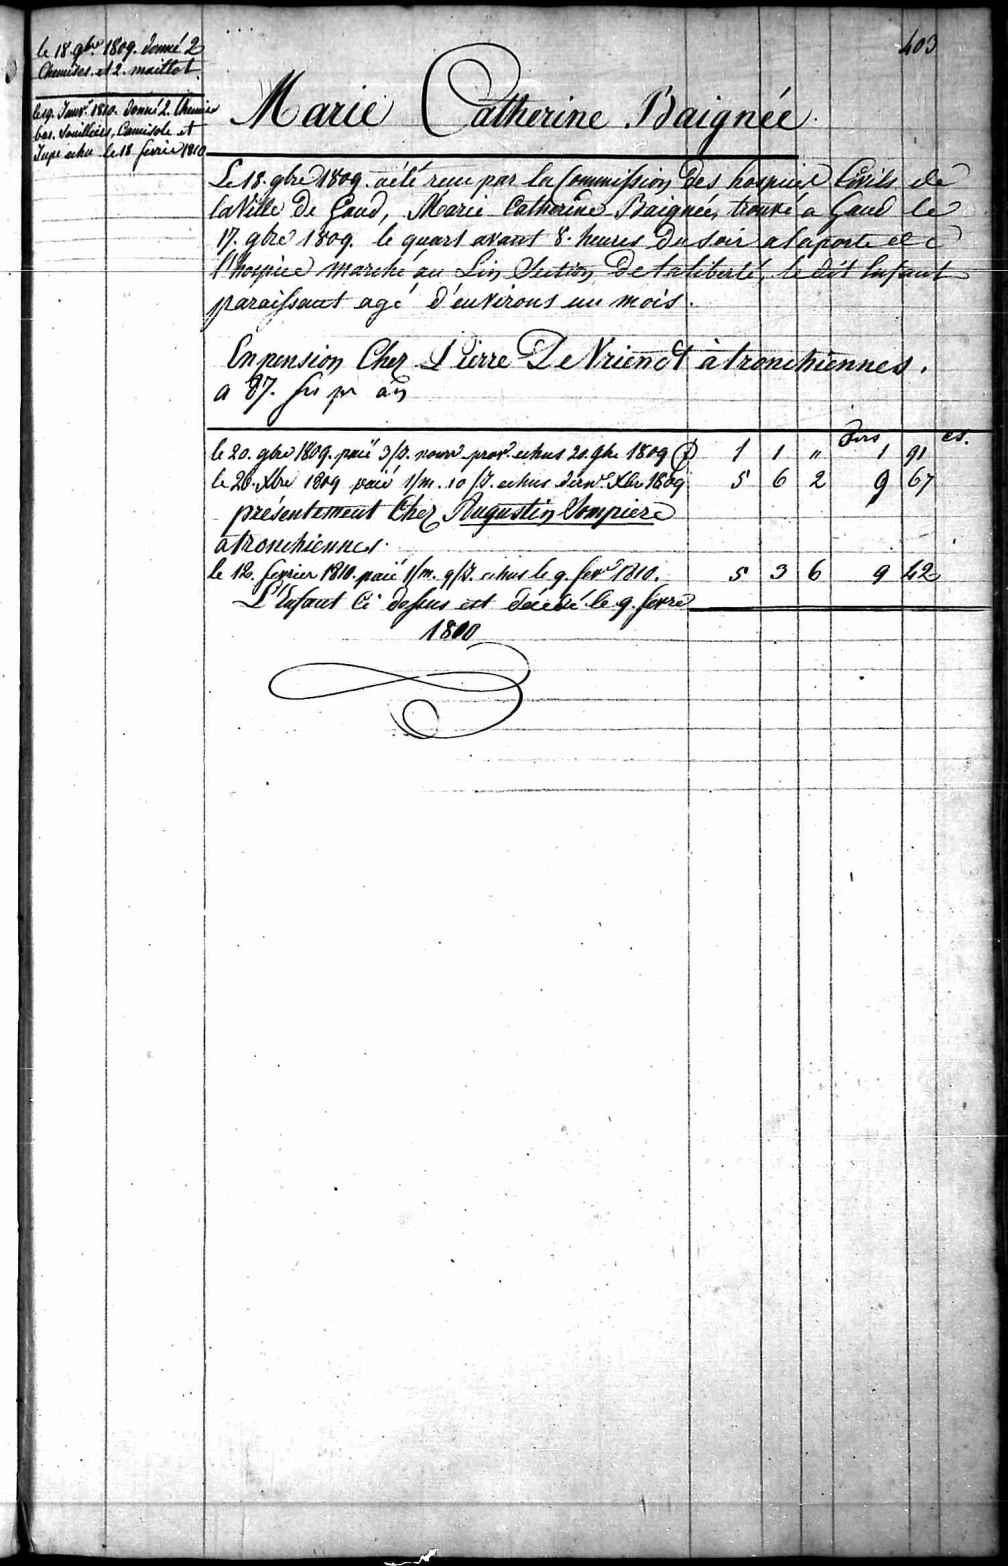 403
le 18. gbre 1809. donné 2
Chemises. et 2. maillot.
le 19. Janvr 1810. donné 2. Chemise
bas. Souilliers, Camisole et
Jupe echu le 18 fevrie 1810
Marie Catherine Baignée.
Le 18. gbre 1809. a été reçu par la Commission des hospice Civils de
la Ville de Gand, Marie Catherine Baignée, trouvé a Gand le
17. gbre 1809. le quart avant 8. heures du soir a la porte de
l'hospice marché au Lin Section de la liberté, le dit Enfant
paraissant agé d'environs un mois.
En pension Chez Pierre De Vriendt à tronchiennes.
a 87. frs pr an
frs cs.
le 20. gbre 1809. paié 3/J. nourr prov. echus 20. gbre 1809 1 1 " 1 91
le 28. Xbre 1809 paié 1/m. 10/J. echus dernr Xbr 1809 5 6 2 9 67
présentement Chez Augustin Sompiere
à tronchiennes.
le 12. fevrier 1810. paié 1/m. 9/J. echus le 9. fevr 1810. 5 3 6 9 42
L'Enfant Ci dessus est décédé le 9. fevre
1810